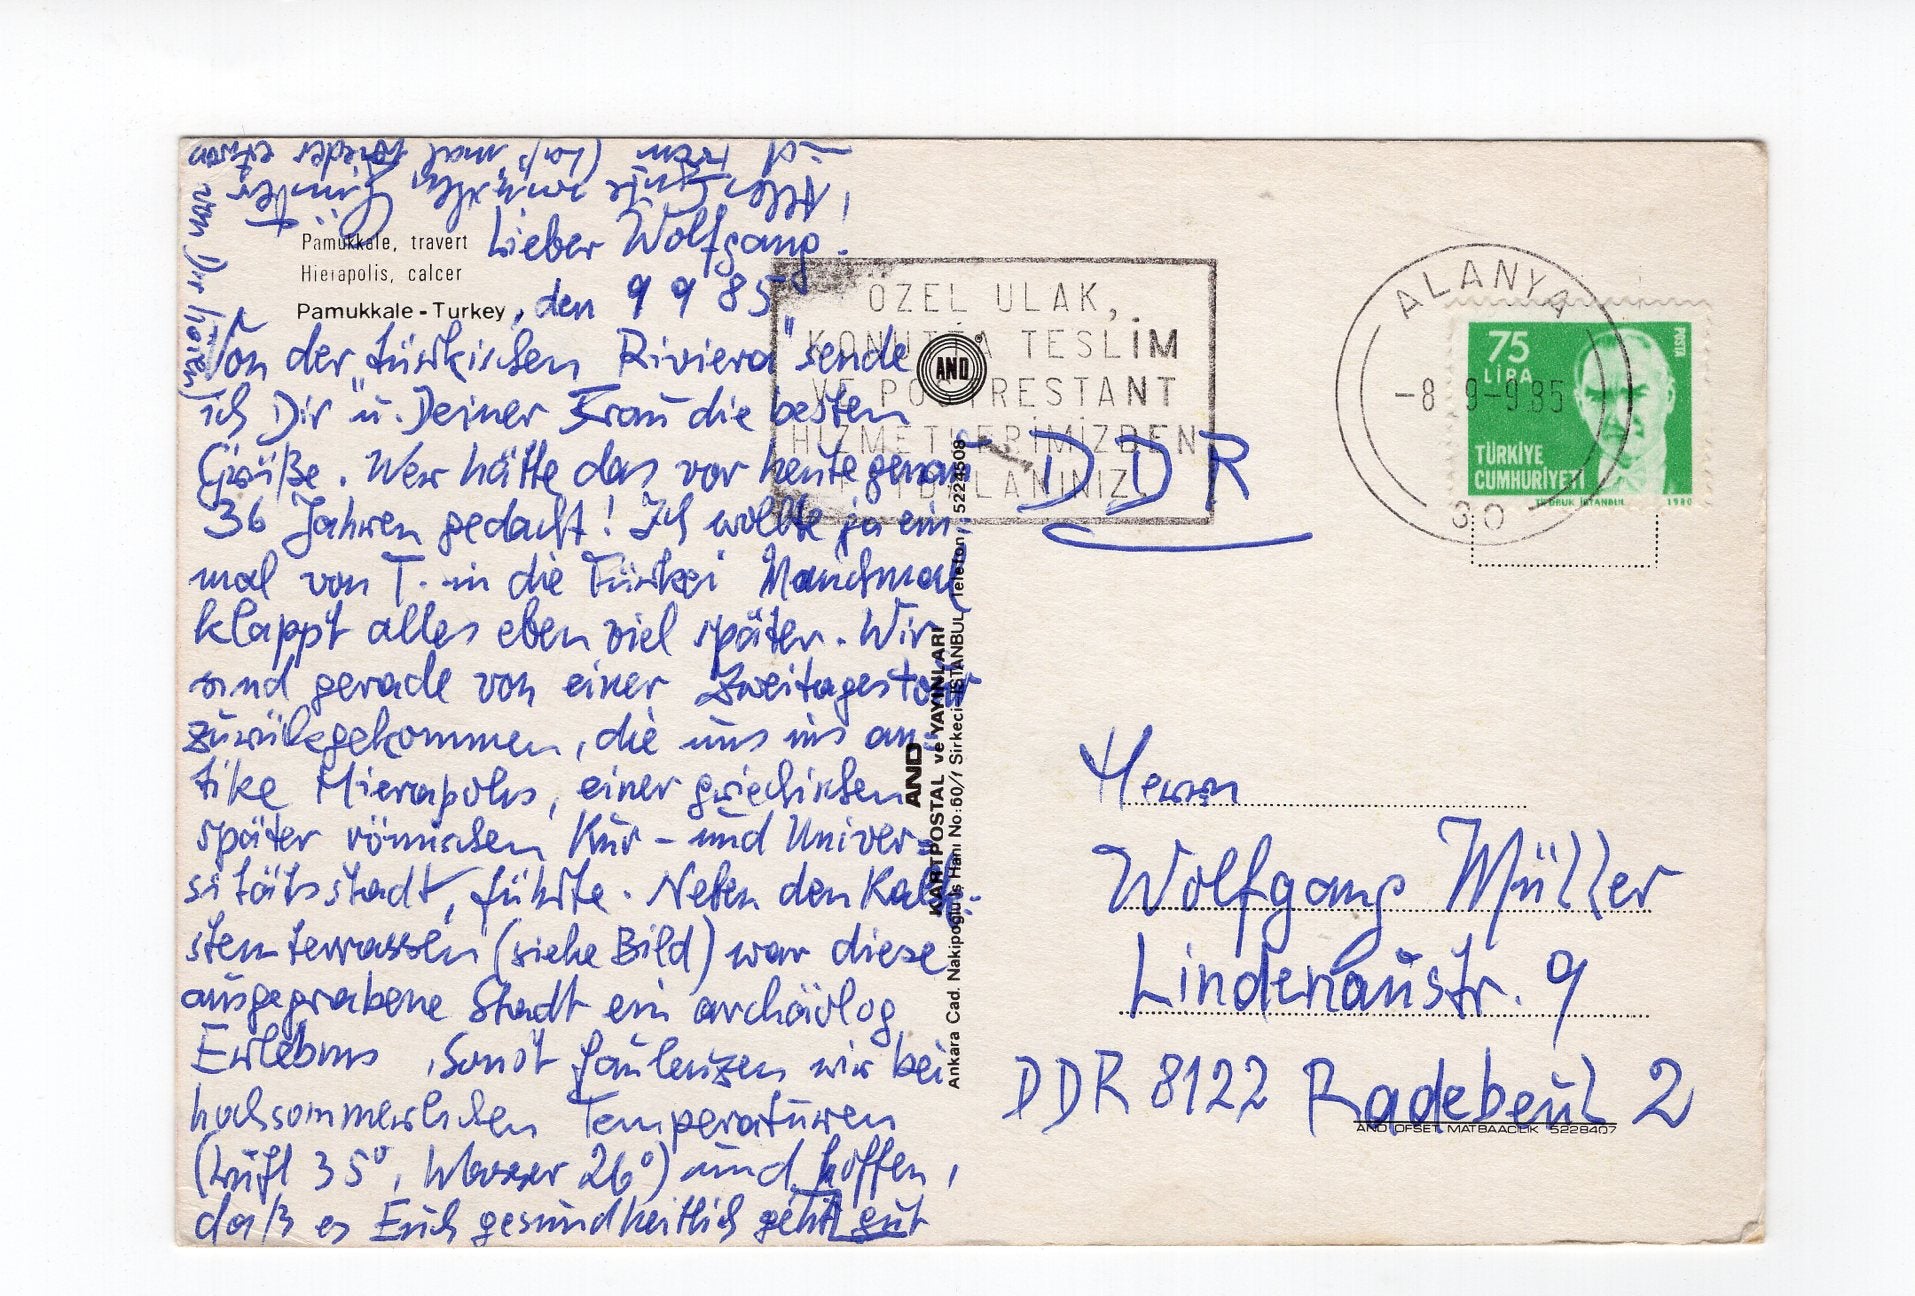 Pamukkale, travert
Hierapolis, calcer
Pamukkale - Turkey
Lieber Wolfgang!
, den 9 9 85
Von der "türkischen Riviera" sende
ich Dir u. Deiner Frau die besten
Grüße. Wer hätte das vor heute genau
36 Jahren gedacht! Ich wollte ja ein-
mal von T. in die Türkei Manchmal
klappt alles eben viel später. Wir
sind gerade von einer Zweitagestour
zurückgekommen, die uns ins an-
tike Hierapolis, einer griechischen
später römischen Kur- und Univer-
sitätsstadt, führte. Neben den Kalk-
steinterrassen (siehe Bild) war diese
ausgegrabene Stadt ein archäolog
Erlebnis. Sonst faulenzen wir bei
hochsommerlichen Temperaturen
(Luft 35°, Wasser 26°) und hoffen,
daß es Euch gesundheitlich geht gut
Alles Gute wünscht Günter
(Laß mal wieder etwas
von Dir hören)
ÖZEL ULAK,
KONUTTA TESLİM
VE POSTRESTANT
HİZMETLERİMİZDEN
FAYDALANINIZ.
AND
AND
KARTPOSTAL ve YAYINLARI
Ankara Cad. Nakipoğlu İş Hanı No:60/1 Sirkeci-İSTANBUL Telefon: 5224508
DDR
ALANYA
-8 9-9.85
75
LİRA
POSTA
TÜRKİYE
CUMHURİYETİ
1980
Herrn
Wolfgang Müller
Lindenaustr. 9
DDR 8122 Radebeul 2
AND OFSET MATBAACILIK 5228407